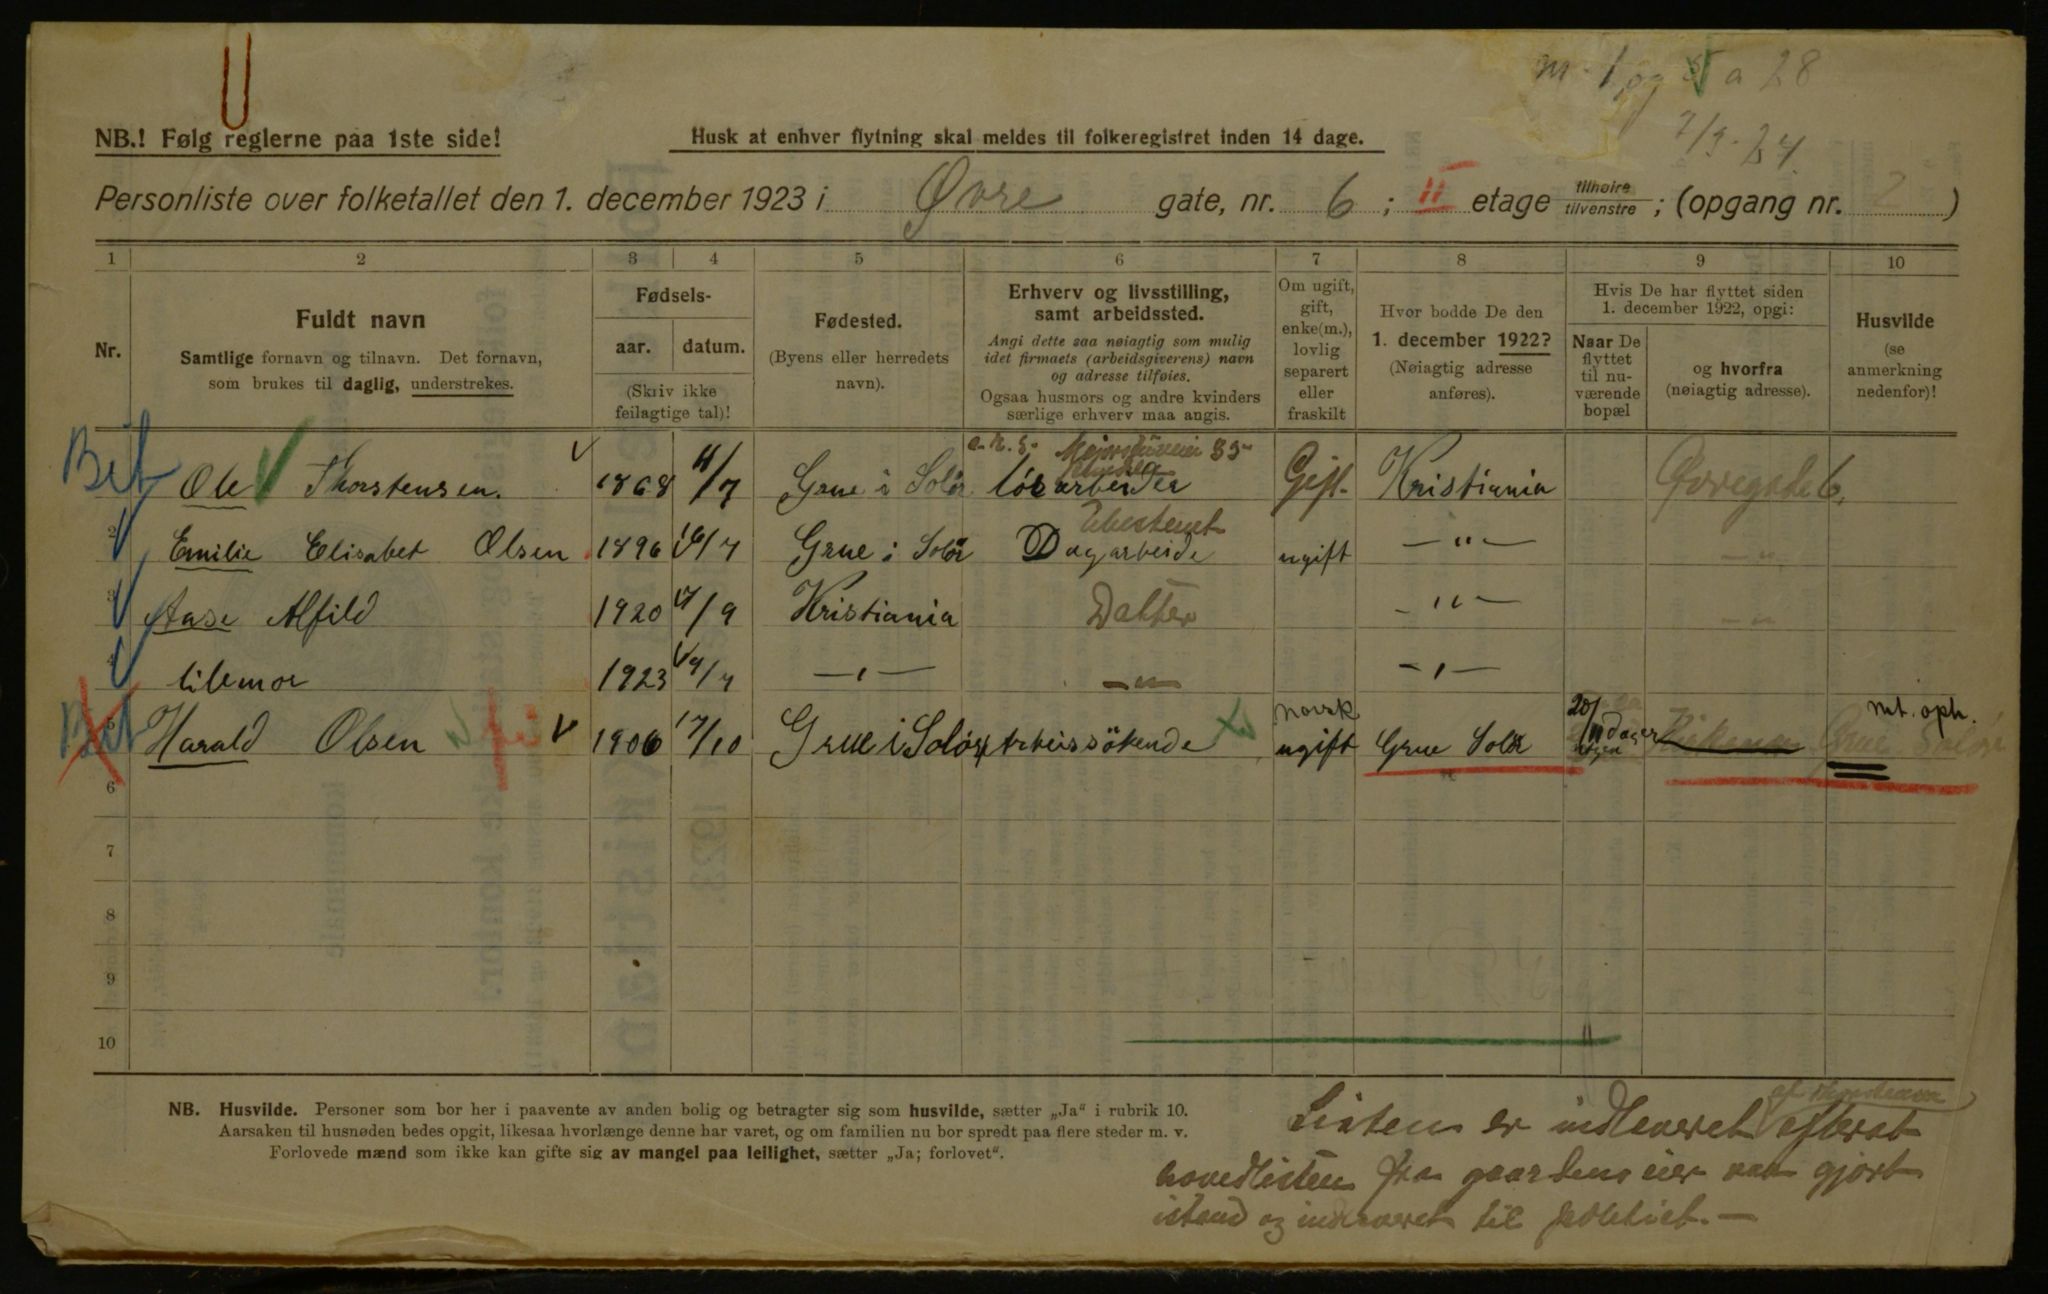 7/3-24.
NB.! Følg reglerne paa 1ste side!
Husk at enhver flytning skal meldes til folkeregistret inden 14 dage.
Personliste over folketallet den 1. december 1923 i Øvre gate, nr. 6; II etage tilhøire tilvenstre; (opgang nr. 2)
1 2 3 4 5 6 7 8 9 10
Nr.
Fuldt navn
Samtlige fornavn og tilnavn. Det fornavn,
som brukes til daglig, understrekes.
Fødsels-
aar. datum.
(Skriv ikke
feilagtige tal)!
Fødested.
(Byens eller herredets
navn).
Erhverv og livsstilling,
samt arbeidssted.
Angi dette saa nøiagtig som mulig
idet firmaets (arbeidsgiverens) navn
og adresse tilføies.
Ogsaa husmors og andre kvinders
særlige erhverv maa angis.
Om ugift,
gift,
enke(m.),
lovlig
separert
eller
fraskilt
Hvor bodde De den
1. december 1922?
(Nøiagtig adresse
anføres).
Hvis De har flyttet siden
1. december 1922, opgi:
Naar De
flyttet
til nu-
værende
bopæl
og hvorfra
(nøiagtig adresse).
Husvilde
(se
anmerkning
nedenfor)!
Bit Ole Thorstensen. 1868 4/7 Grue i Solør løsarbeider Gift Kristiania Øvregate 6.
2 Emilie Elisabet Olsen 1896 16/7 Grue i Solør Dagarbeide ugift — " —
3 Aase Alfild 1920 17/9 Kristiania Datter — " —
4 lillemor 1923 9/7 — " — — " — — " —
5 Harald Olsen 1906 17/10 Grue i Solør Arbeissökende norsk ugift Grue Solør 20/11 Grue Solør mt. oph.
6
7
8
9
10
NB. Husvilde. Personer som bor her i paavente av anden bolig og betragter sig som husvilde, sætter „Ja" i rubrik 10.
Aarsaken til husnøden bedes opgit, likesaa hvorlænge denne har varet, og om familien nu bor spredt paa flere steder m. v.
Forlovede mænd som ikke kan gifte sig av mangel paa leilighet, sætter „Ja; forlovet".
Listen er indleveret efterat
hovedlisten fra gaardens eier var gjort
istand og indleveret til politiet. —